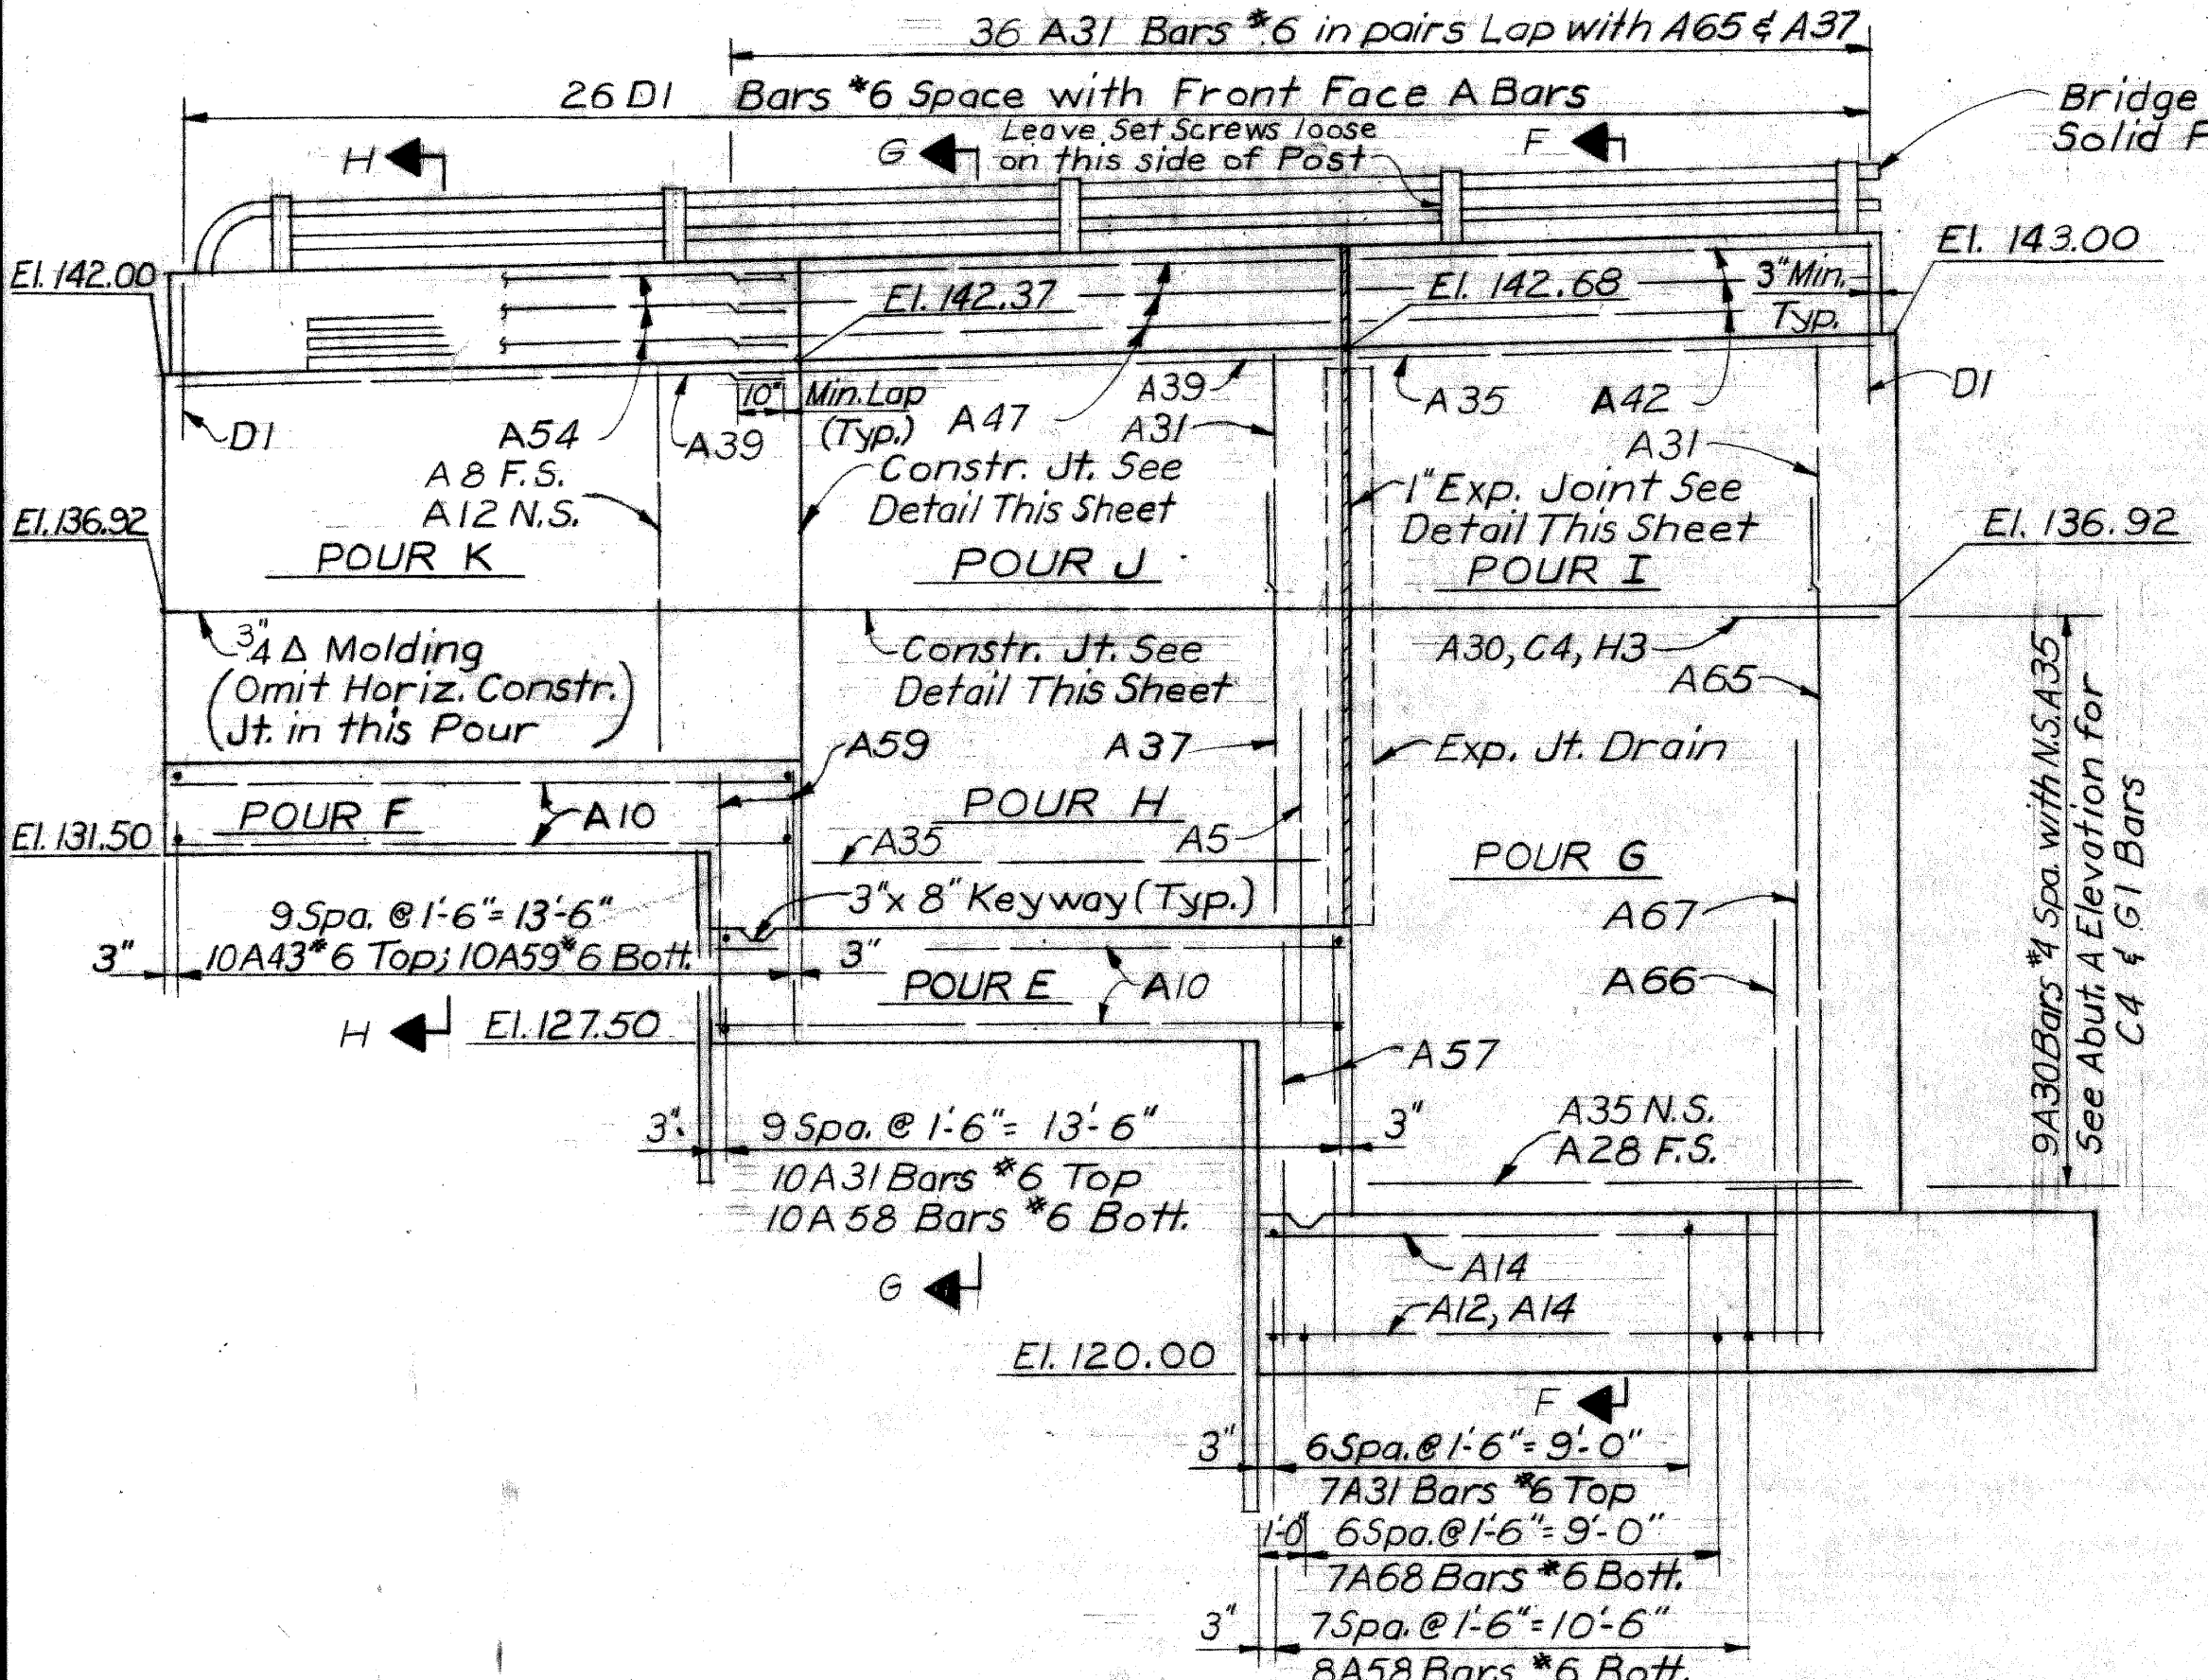 36 A31 Bars #6 in pairs Lap with A65 & A37
26 D1 Bars #6 Space with Front Face A Bars
Bridge
Solid
Leave Set Screws loose
on this side of Post
H
G
F
El. 142.00
El. 142.37
El. 142.68
3" Min.
Typ.
El. 143.00
D1
A54
A39
10" Min. Lap
(Typ.)
A47
A39
A31
A35
A42
D1
A31
A8 F.S.
A12 N.S.
Constr. Jt. See
Detail This Sheet
1" Exp. Joint See
Detail This Sheet
El. 136.92
POUR K
POUR J
POUR I
El. 136.92
3/4" Δ Molding
(Omit Horiz. Constr.
Jt. in this Pour)
Constr. Jt. See
Detail This Sheet
A30, C4, H3
A65
A59
A37
Exp. Jt. Drain
POUR F
A10
POUR H
A5
El. 131.50
A35
POUR G
9 Spa. @ 1'-6" = 13'-6"
3"
10A43 #6 Top; 10A59 #6 Bott.
3"
3" x 8" Keyway (Typ.)
A67
POUR E
A10
A66
H
El. 127.50
A57
9A30 Bars #4 Spa. with N.S. A35
See Abut. A Elevation for
C4 & G1 Bars
3"
9 Spa. @ 1'-6" = 13'-6"
3"
10 A31 Bars #6 Top
10 A58 Bars #6 Bott.
A35 N.S.
A28 F.S.
G
A14
A12, A14
El. 120.00
F
3"
6 Spa. @ 1'-6" = 9'-0"
7A31 Bars #6 Top
1'-0"
6 Spa. @ 1'-6" = 9'-0"
7A68 Bars #6 Bott.
3"
7 Spa. @ 1'-6" = 10'-6"
8A58 Bars #6 Bott.